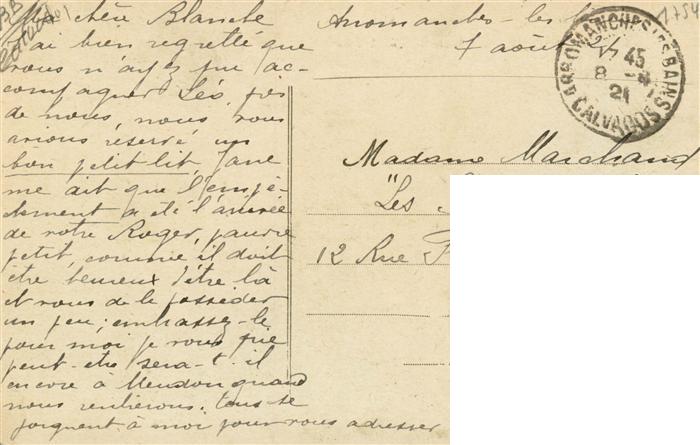 Ma chère Blanche
J'ai bien regretté que
vous n'ayez pu ac-
compagner Léo, près
de nous, nous vous
avions réservé un
bon petit lit, Jane
me dit que l'empê-
chement a été l'arrivée
de votre Roger, pauvre
petit, comme il doit
être heureux d'être là
et vous de le posséder
un peu; embrassez-le
pour moi je vous prie
peut-être sera-t-il
encore à Meudon quand
nous rentrerons. tous se
joignent à moi pour vous adresser
Arromanches-les-
7 août
ARROMANCHES-LES-BAINS
45
8 -8
21
CALVADOS
Madame Marchand
"Les
12 Rue